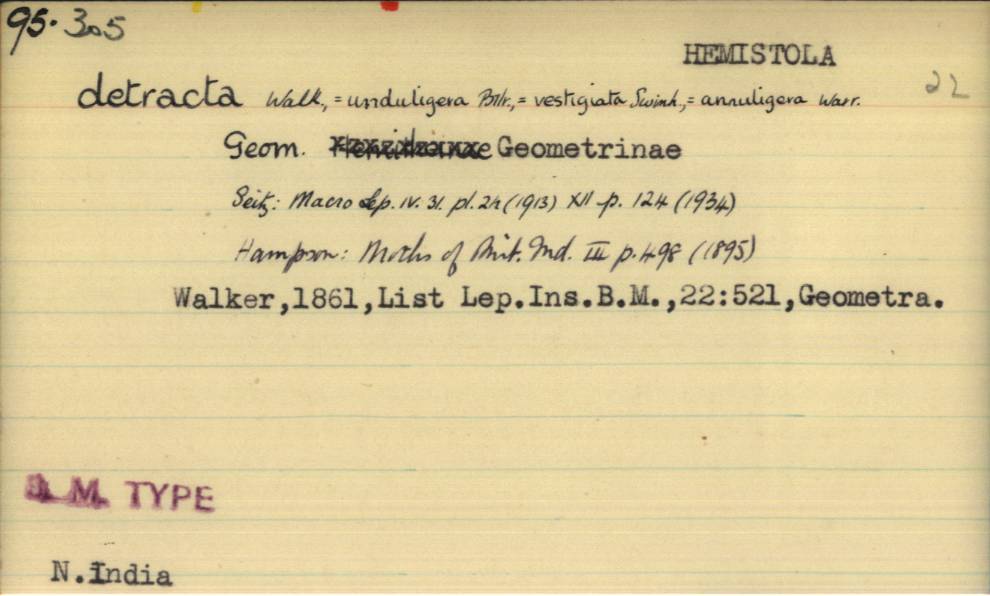 95. 305
HEMISTOLA
22
detracta Walk., = unduligera Btlr., = vestigiata Swinh., = annuligera Warr.
Geom. Geometrinae
Seitz: Macrolep. IV. 31. pl. 2h (1913) XII p. 124 (1934)
Hampson: Moths of Brit. Ind. III p. 498 (1895)
Walker,1861,List Lep.Ins.B.M.,22:521,Geometra.
B.M. TYPE
N.India